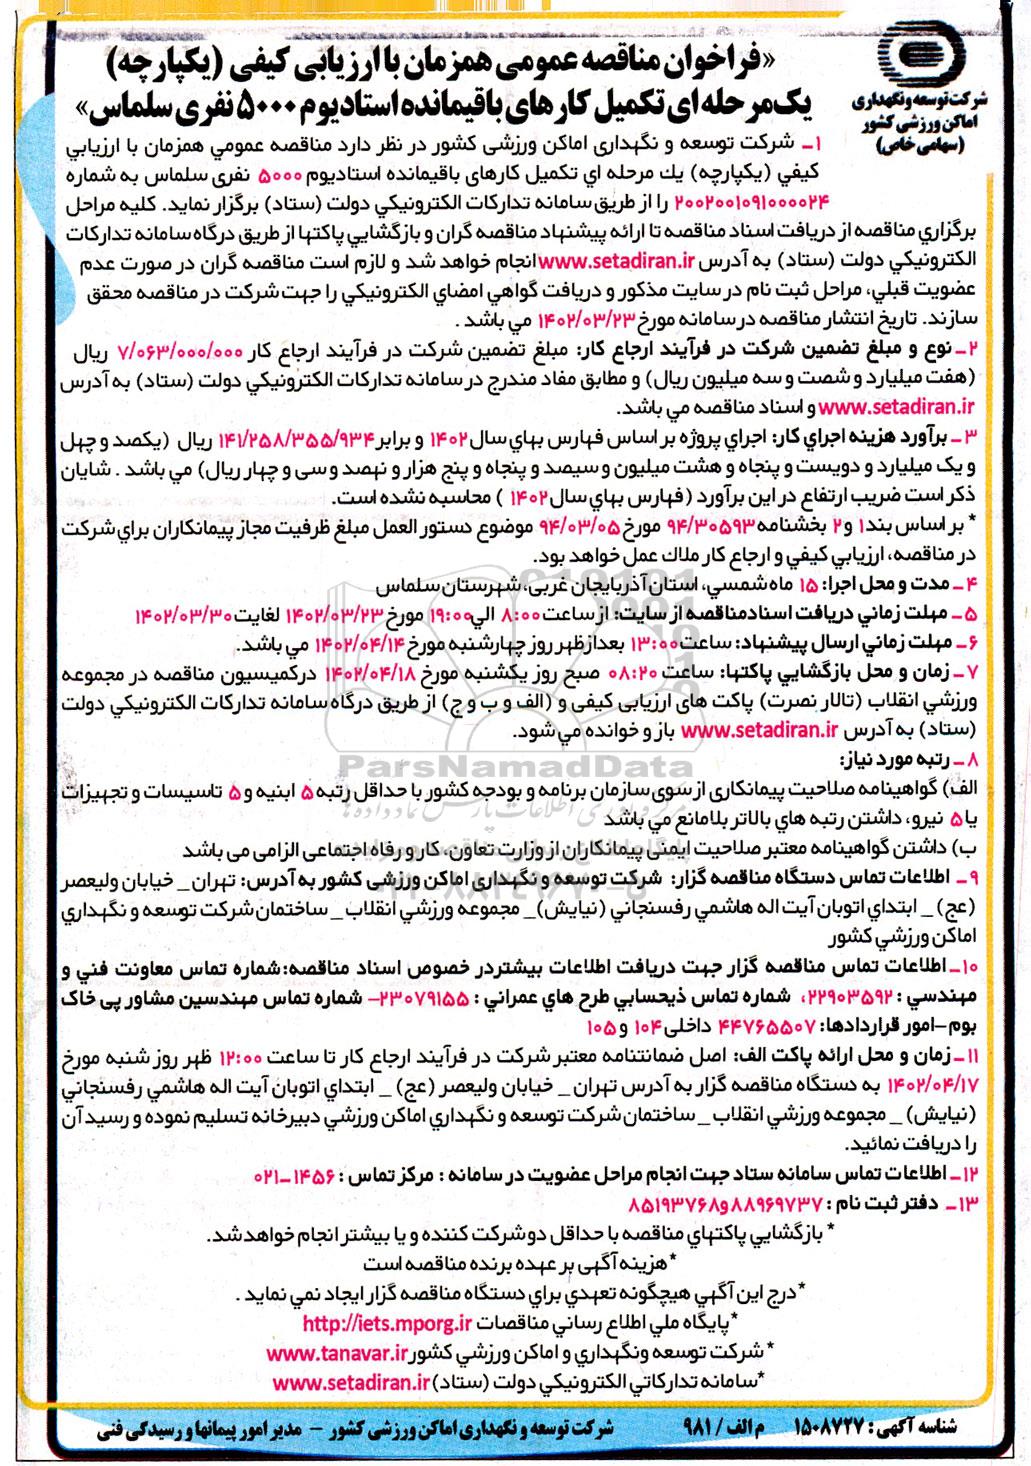 شرکت توسعه و نگهداری
اماکن ورزشی کشور
(سهامی خاص)
«فراخوان مناقصه عمومی همزمان با ارزیابی کیفی (یکپارچه)
یک مرحله ای تکمیل کارهای باقیمانده استادیوم ۵۰۰۰ نفری سلماس»
۱ـ شرکت توسعه و نگهداری اماکن ورزشی کشور در نظر دارد مناقصه عمومي همزمان با ارزیابي
کیفي (یکپارچه) یك مرحله اي تکمیل کارهای باقیمانده استادیوم ۵۰۰۰ نفری سلماس به شماره
۲۰۰۲۰۰۱۰۹۱۰۰۰۰۲۴ را از طریق سامانه تدارکات الکترونیکي دولت (ستاد) برگزار نماید. کلیه مراحل
برگزاري مناقصه از دریافت اسناد مناقصه تا ارائه پیشنهاد مناقصه گران و بازگشایي پاکتها از طریق درگاه سامانه تدارکات
الکترونیکي دولت (ستاد) به آدرس www.setadiran.ir انجام خواهد شد و لازم است مناقصه گران در صورت عدم
عضویت قبلي، مراحل ثبت نام در سایت مذکور و دریافت گواهي امضاي الکترونیکي را جهت شرکت در مناقصه محقق
سازند. تاریخ انتشار مناقصه در سامانه مورخ ۱۴۰۲/۰۳/۲۳ مي باشد .
۲ـ نوع و مبلغ تضمین شرکت در فرآیند ارجاع کار: مبلغ تضمین شرکت در فرآیند ارجاع کار ۷/۰۶۳/۰۰۰/۰۰۰ ریال
(هفت میلیارد و شصت و سه میلیون ریال) و مطابق مفاد مندرج در سامانه تدارکات الکترونیکي دولت (ستاد) به آدرس
www.setadiran.ir و اسناد مناقصه مي باشد.
۳ـ برآورد هزینه اجراي کار: اجراي پروژه بر اساس فهارس بهاي سال ۱۴۰۲ و برابر ۱۴۱/۲۵۸/۳۵۵/۹۳۴ ریال (یکصد و چهل
و یک میلیارد و دویست و پنجاه و هشت میلیون و سیصد و پنجاه و پنج هزار و نهصد و سی و چهار ریال) مي باشد . شایان
ذکر است ضریب ارتفاع در این برآورد (فهارس بهاي سال ۱۴۰۲ ) محاسبه نشده است.
* بر اساس بند ۱ و ۲ بخشنامه ۹۴/۳۰۵۹۳ مورخ ۹۴/۰۳/۰۵ موضوع دستور العمل مبلغ ظرفیت مجاز پیمانکاران براي شرکت
در مناقصه، ارزیابي کیفي و ارجاع کار ملاك عمل خواهد بود.
۴ـ مدت و محل اجرا: ۱۵ ماه شمسي، استان آذربایجان غربی، شهرستان سلماس
۵ـ مهلت زماني دریافت اسناد مناقصه از سایت: از ساعت ۸:۰۰ الي ۱۹:۰۰ مورخ ۱۴۰۲/۰۳/۲۳ لغایت ۱۴۰۲/۰۳/۳۰
۶ـ مهلت زماني ارسال پیشنهاد: ساعت ۱۳:۰۰ بعدازظهر روز چهارشنبه مورخ ۱۴۰۲/۰۴/۱۴ مي باشد.
۷ـ زمان و محل بازگشایي پاکتها: ساعت ۰۸:۲۰ صبح روز یکشنبه مورخ ۱۴۰۲/۰۴/۱۸ درکمیسیون مناقصه در مجموعه
ورزشي انقلاب (تالار نصرت) پاکت های ارزیابی کیفی و (الف و ب و ج) از طریق درگاه سامانه تدارکات الکترونیکي دولت
(ستاد) به آدرس www.setadiran.ir باز و خوانده مي شود.
۸ـ رتبه مورد نیاز:
ParsNamadData
الف) گواهینامه صلاحیت پیمانکاری از سوی سازمان برنامه و بودجه کشور با حداقل رتبه ۵ ابنیه و ۵ تاسیسات و تجهیزات
یا ۵ نیرو، داشتن رتبه هاي بالاتر بلامانع مي باشد
ب) داشتن گواهینامه معتبر صلاحیت ایمنی پیمانکاران از وزارت تعاون، کار و رفاه اجتماعی الزامی می باشد
۹ـ اطلاعات تماس دستگاه مناقصه گزار: شرکت توسعه و نگهداری اماکن ورزشی کشور به آدرس: تهران _ خیابان ولیعصر
(عج) _ ابتداي اتوبان آیت اله هاشمي رفسنجاني (نیایش) _ مجموعه ورزشي انقلاب _ ساختمان شرکت توسعه و نگهداري
اماکن ورزشي کشور
۱۰ـ اطلاعات تماس مناقصه گزار جهت دریافت اطلاعات بیشتر در خصوص اسناد مناقصه: شماره تماس معاونت فني و
مهندسي : ۲۲۹۰۳۵۹۲، شماره تماس ذیحسابي طرح هاي عمراني : ۲۳۰۷۹۱۵۵- شماره تماس مهندسین مشاور پی خاک
بوم-امور قراردادها: ۴۴۷۶۵۵۰۷ داخلی ۱۰۴ و ۱۰۵
۱۱ـ زمان و محل ارائه پاکت الف: اصل ضمانتنامه معتبر شرکت در فرآیند ارجاع کار تا ساعت ۱۲:۰۰ ظهر روز شنبه مورخ
۱۴۰۲/۰۴/۱۷ به دستگاه مناقصه گزار به آدرس تهران _ خیابان ولیعصر (عج) _ ابتداي اتوبان آیت اله هاشمي رفسنجاني
(نیایش) _ مجموعه ورزشي انقلاب _ ساختمان شرکت توسعه و نگهداري اماکن ورزشي دبیرخانه تسلیم نموده و رسید آن
را دریافت نمائید.
۱۲ـ اطلاعات تماس سامانه ستاد جهت انجام مراحل عضویت در سامانه : مرکز تماس : ۱۴۵۶ـ۰۲۱
۱۳ـ دفتر ثبت نام : ۸۸۹۶۹۷۳۷ و ۸۵۱۹۳۷۶۸
* بازگشایي پاکتهاي مناقصه با حداقل دو شرکت کننده و یا بیشتر انجام خواهد شد.
*هزینه آگهی بر عهده برنده مناقصه است
*درج این آگهي هیچگونه تعهدي براي دستگاه مناقصه گزار ایجاد نمي نماید .
*پایگاه ملي اطلاع رساني مناقصات http://iets.mporg.ir
* شرکت توسعه ونگهداري و اماکن ورزشي کشور www.tanavar.ir
*سامانه تدارکاتي الکترونیکي دولت (ستاد) www.setadiran.ir
شناسه آگهی: ۱۵۰۸۷۲۷ م الف / ۹۸۱ شرکت توسعه و نگهداری اماکن ورزشی کشور - مدیر امور پیمانها و رسیدگی فنی